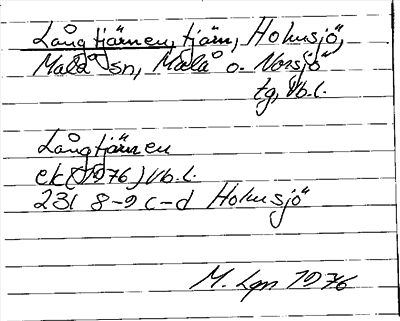 Långtjärnen, tjärn, Holmsjö,
Malå sn, Malå o. Norsjö
tg, Vb.l.
Långtjärnen
ek (1976) Vb.l.
23I 8-9 c-d Holmsjö
M. Lgn 1976